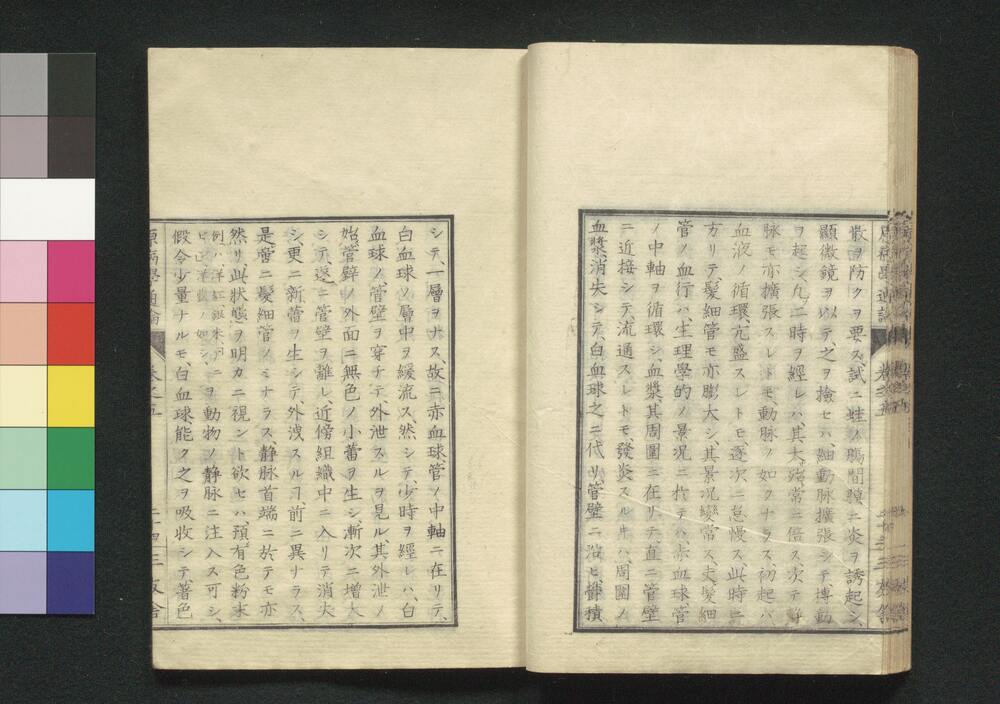 散ヲ防クヲ要ス、試ニ蛙ノ腸間膜ニ炎ヲ誘起シ、
顯微鏡ヲ以テ、之ヲ撿セハ、細動脉擴張シテ、搏動
ヲ起シ、凡二時ヲ經レハ、其大殆常ニ倍ス、次テ靜
脉モ亦擴張スレトモ、動脉ノ如クナラス、初起ハ
血液ノ循環、亢盛スレトモ、逐次ニ怠慢ス、此時ニ
方リテ、髮細管モ亦膨大シ、其景况變常ス、夫髮細
管ノ血行ハ、生理學的ノ景况ニ於テハ、赤血球管
ノ中軸ヲ循環シ、血漿、其周圍ニ在リテ、直ニ管壁
ニ近接シテ、流通スレトモ、發炎スルキハ、周圍ノ
血漿、消失シテ、白血球之ニ代リ、管壁ニ沿ヒ、欝積
シテ、一層ヲナス、故ニ赤血球管ノ中軸ニ在リテ、
白血球ノ層中ヲ緩流ス、然シテ、少時ヲ經レハ、白
血球ノ管壁ヲ穿チテ、外泄スルヲ見ル、其外泄ノ
始、管壁ノ外面ニ無色ノ小蕾ヲ生シ、漸次ニ增大
シテ、遂ニ管壁ヲ離レ、近傍組織中ニ入リテ消失
シ、更ニ新蕾ヲ生シテ、外洩スルヿ前ニ異ナラス、
是啻ニ髮細管ノミナラス、靜脉首端ニ於テモ亦
然リ、此狀態ヲ明カニ視ント欲セハ、預有色粉末
例ハ洋紅、銀朱、ヲ動物ノ靜脉ニ注入ス可シ、
假令少量ナルモ、白血球、能ク之ヲ吸收シテ、著色
原病學通論